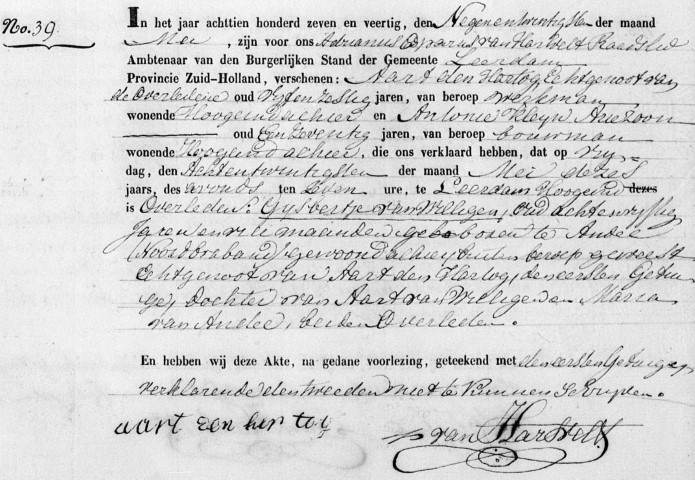 No. 39.
In het jaar achttien honderd zeven en veertig, den Negenentwintigsten der maand
Mei, zijn voor ons Adrianus van Harsvelt Raadslid
Ambtenaar van den Burgerlijken Stand der Gemeente Leerdam
Provincie Zuid-Holland, verschenen: Aart den Hartog Echtgenoot van
de Overledene oud Vyfenzestig jaren, van beroep Werkman
wonende Hoogeind achier en Antonie Kleyn Ariezoon
oud Eenzeventig jaren, van beroep bouwman
wonende Hoogeind achier, die ons verklaard hebben, dat op Vry=
dag, den Achtentwintigsten der maand Mei dezes
jaars, des avonds ten Zeven ure, te Leerdam Hoogeind dezes
is Overleden: Gysbertje van Wiligen, oud achtenvyftig
Jaren en maanden, geboren te Andel
(Noordbraband) gewoond achier buiten beroep geweest
Echtgenoot van Aart den Hartog, den eersten Getui-
ge, dochter van Aart van Wiligen en Maria
van Andel, beiden Overleden.
En hebben wij deze Akte, na gedane voorlezing, geteekend met den eersten Getuige,
verklarende den tweeden niet te kunnen Schryven.
aart den har tog
van Harsvelt